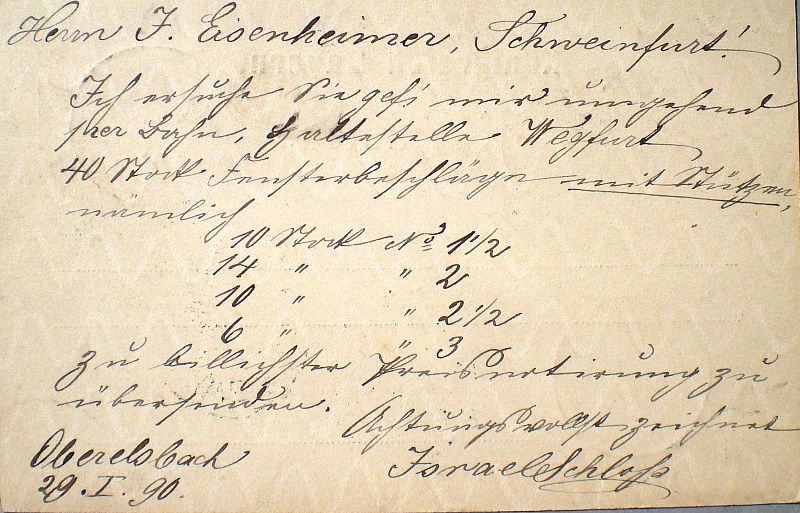 Herrn J. Eisenheimer, Schweinfurt!
Ich ersuche Sie gefl mir umgehend
per Bahn, Haltestelle Wegfurt
40 Stock Fensterbeschläge mit Stützen,
nämlich
10 Stock No 1 1/2
14 " " 2
10 " " 2 1/2
6 " " 3
zu billichster Preisnotirung zu
übersenden.
Achtungsvollst zeichnet
Oberelsbach Israel Schloß
29. I. 90.